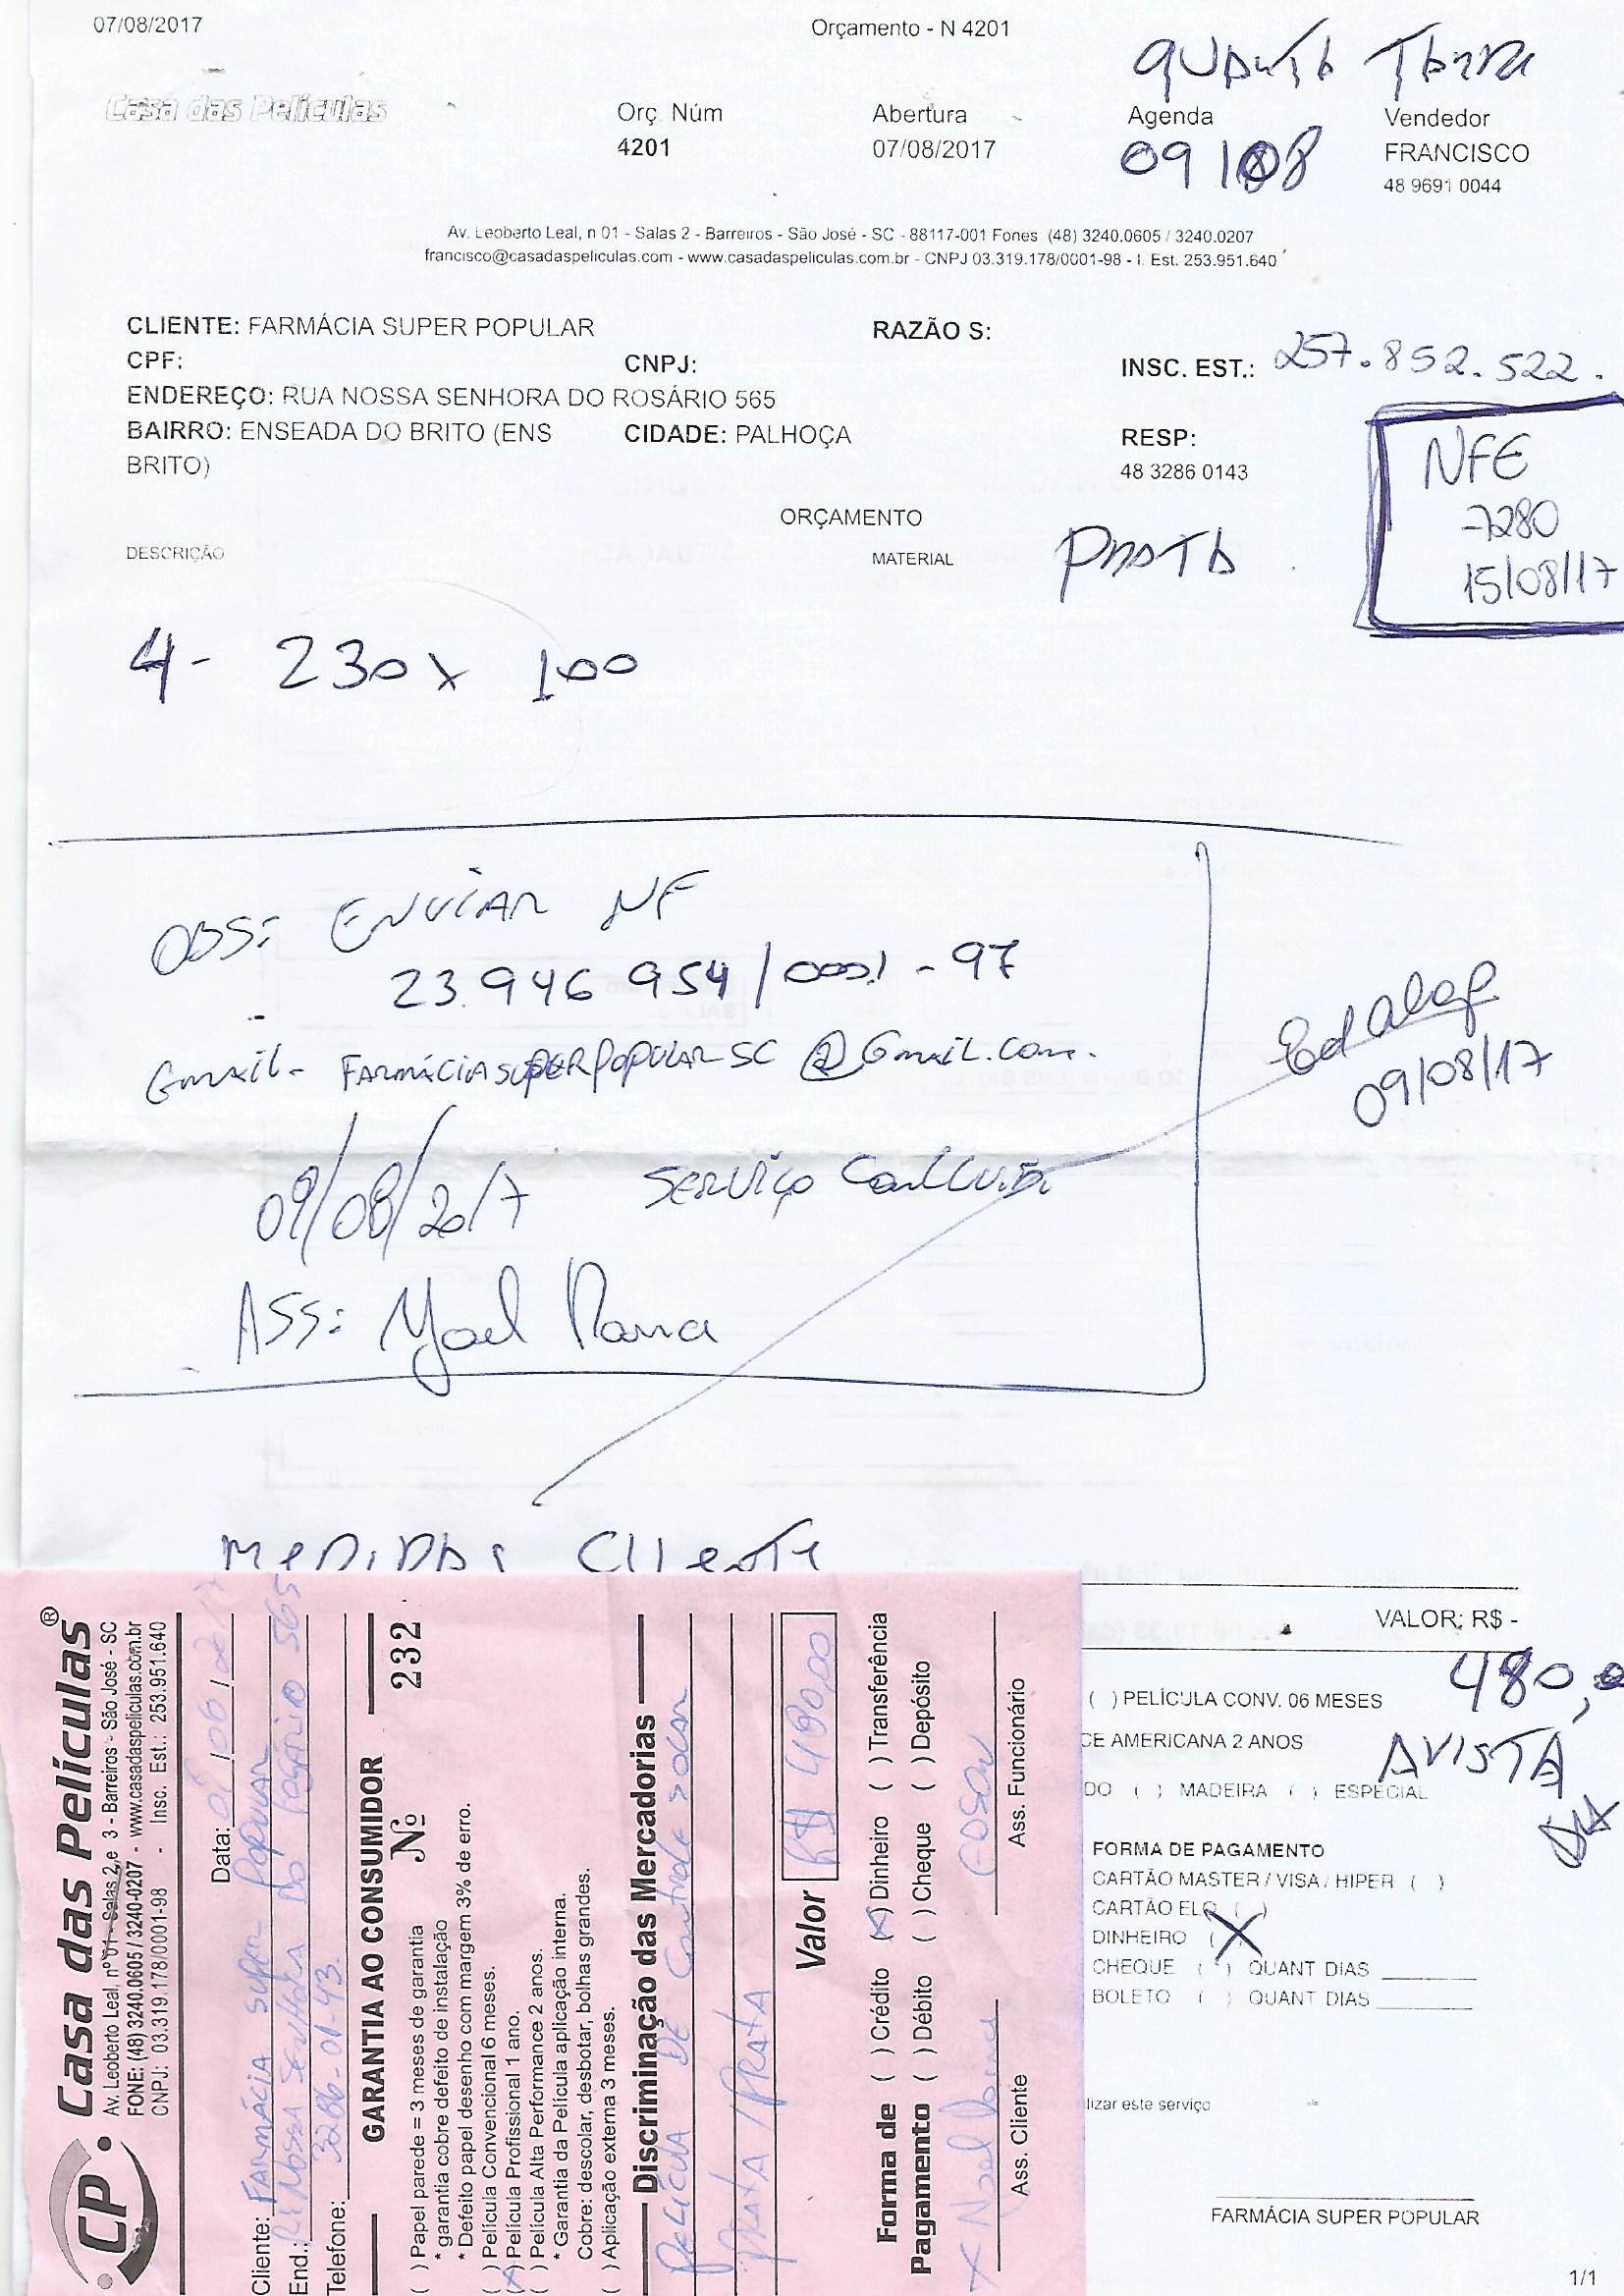 07/08/2017
Orçamento - N 4201
QUARTA TARDE
Casa das Películas
Orç. Núm
Abertura
Agenda
Vendedor
4201
07/08/2017
09/08
FRANCISCO
48 9691 0044
Av. Leoberto Leal, n 01 - Salas 2 - Barreiros - São José - SC - 88117-001 Fones: (48) 3240.0605 / 3240.0207
francisco@casadaspeliculas.com - www.casadaspeliculas.com.br - CNPJ 03.319.178/0001-98 - I. Est. 253.951.640
CLIENTE: FARMÁCIA SUPER POPULAR
RAZÃO S:
CPF:
CNPJ:
INSC. EST.: 257.852.522.
ENDEREÇO: RUA NOSSA SENHORA DO ROSÁRIO 565
BAIRRO: ENSEADA DO BRITO (ENS BRITO)
CIDADE: PALHOÇA
RESP:
48 3286 0143
NFE
7280
15/08/17
ORÇAMENTO
DESCRIÇÃO
MATERIAL
PRATA
4- 230 x 100
OBS: ENVIAR NF
23.946 954/0001-97
Gmail- FARMÁCIASUPERPOPULARSC@Gmail.com.
09/08/17
09/08/2017 SERVIÇO
ASS:
MEDIDAS CLIENTE
VALOR: R$ -
480,
( ) PELÍCULA CONV. 06 MESES
CE AMERICANA 2 ANOS
AVISTA
DO ( ) MADEIRA ( ) ESPECIAL
FORMA DE PAGAMENTO
CARTÃO MASTER / VISA / HIPER ( )
CARTÃO ELO ( )
DINHEIRO (X)
CHEQUE ( ) QUANT DIAS ________
BOLETO ( ) QUANT DIAS ________
lizar este serviço
FARMÁCIA SUPER POPULAR
1/1
CP
Casa das Películas®
Av. Leoberto Leal, nº 01 - Salas 2 e 3 - Barreiros - São José - SC
FONE: (48) 3240.0605 / 3240-0207 - www.casadaspeliculas.com.br
CNPJ: 03.319.178/0001-98 - Insc. Est.: 253.951.640
Data:
Cliente: FARMÁCIA super POPULAR
End.: R: NOSSA SENHORA DO ROSÁRIO 565
Telefone: 3286-01-43
GARANTIA AO CONSUMIDOR
Nº 232
( ) Papel parede = 3 meses de garantia
* garantia cobre defeito de instalação
* Defeito papel desenho com margem 3% de erro.
( ) Película Convencional 6 meses.
(X) Película Profissional 1 ano.
( ) Película Alta Performance 2 anos.
* Garantia da Película aplicação interna.
Cobre: descolar, desbotar, bolhas grandes.
( ) Aplicação externa 3 meses.
Discriminação das Mercadorias
PELÍCULA DE Controle solar
PRATA / PRATA
Valor R$ 480,00
Forma de Pagamento
( ) Crédito (X) Dinheiro ( ) Transferência
( ) Débito ( ) Cheque ( ) Depósito
X
Ass. Cliente
Ass. Funcionário